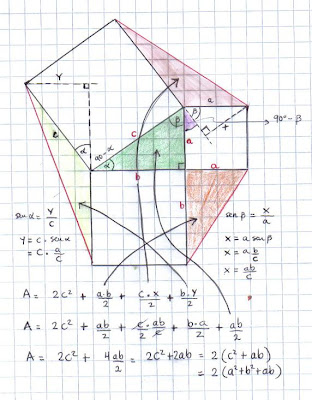 Y
a
β
x
90°-β
c
β
a
α
90-α
α
b
a
b
c
sen α = Y/c
Y = c · sen α
= c · a/c
sen β = x/a
x = a sen β
x = a b/c
x = ab/c
A = 2c² + a·b/2 + c·x/2 + b·Y/2
A = 2c² + ab/2 + c/2 · ab/c + b·a/2 + ab/2
A = 2c² + 4ab/2 = 2c² + 2ab = 2(c² + ab)
= 2(a² + b² + ab)